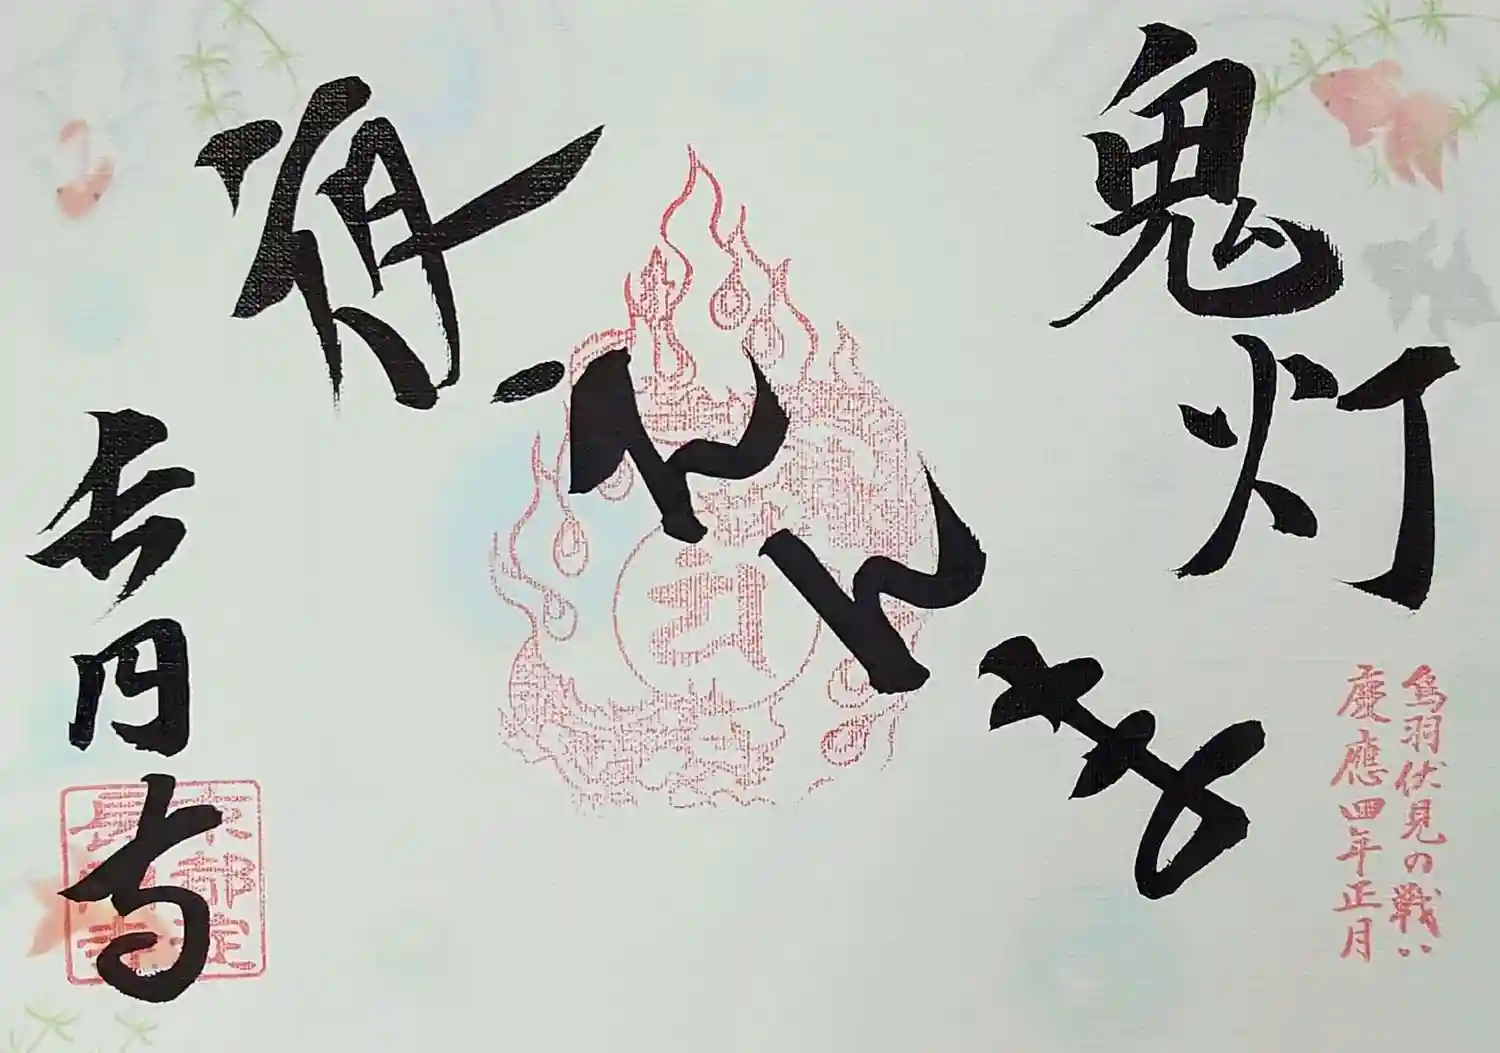 鬼灯
えんま
長円寺
鳥羽伏見の戦い
慶應四年正月
京都淀
長円寺